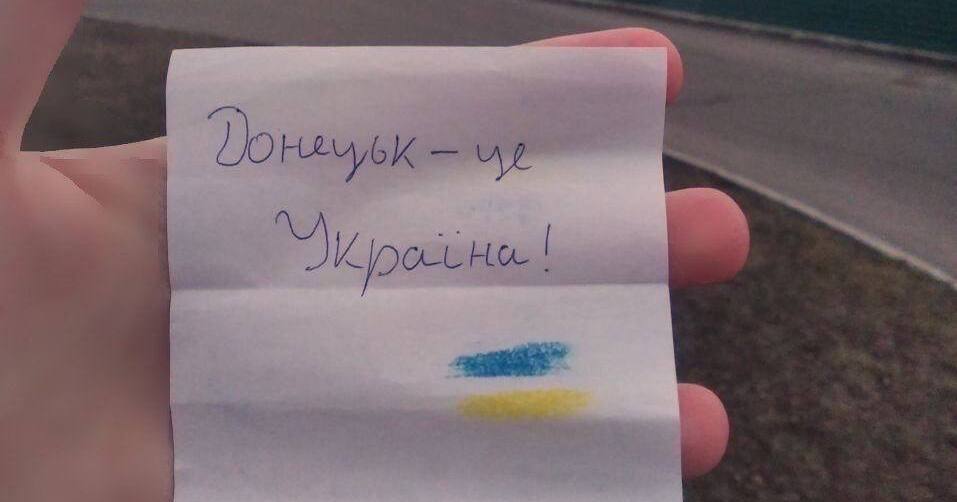 Донецьк – це
Україна!